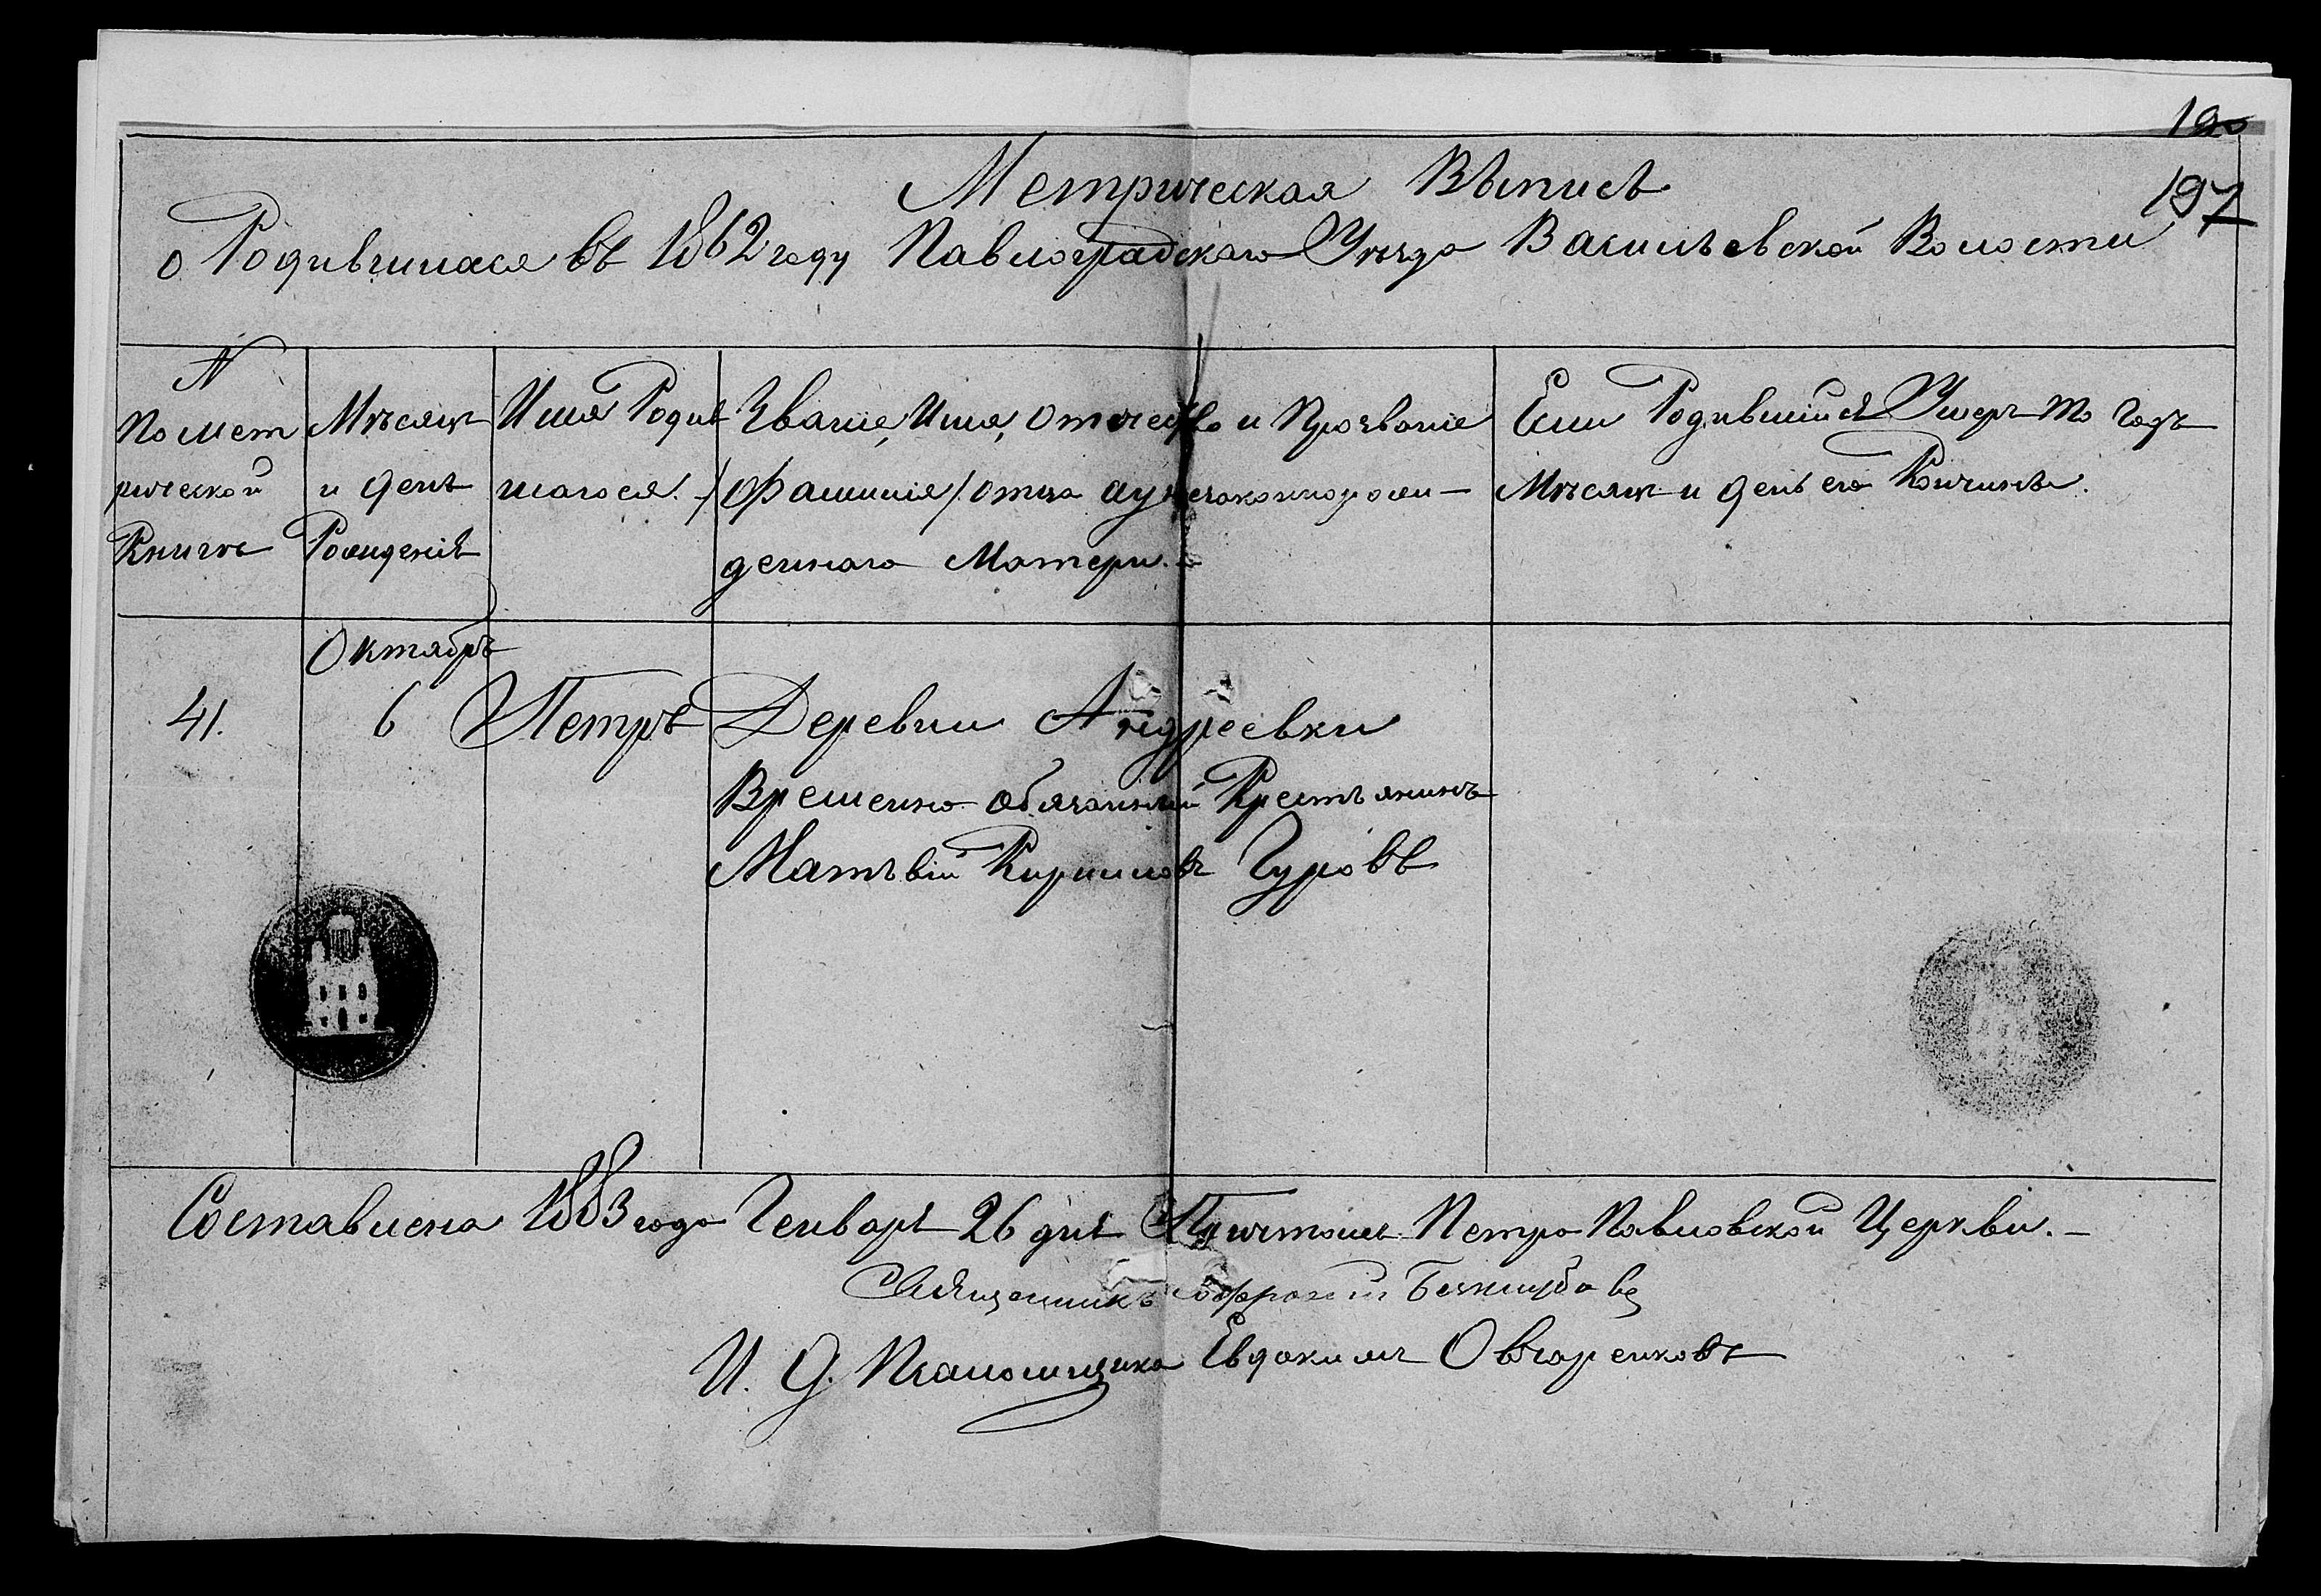 190
197
Метрическая Выпись
о Родившихся въ 1862 году Павлоградскаго Уѣзда Васильевской Волости
N
По мет
рической
Книгѣ
Мѣсяцъ
и день
Рожденія
Имя Родив
шагося.
Званіе, Имя, отчество и Прозваніе
/Фамилія/ отца а у незаконнорож-
деннаго Матери.
Если Родившійся Умеръ то Годъ
Мѣсяцъ и день его Кончины.
Октябрь
41. 6 Петръ Деревни Андреевки
Временно обязанный Крестьянинъ
Матѣвій Кириловъ Гуровъ
Составлена 1883 года Генваря 26 дня Причтомъ Петро Павловской Церкви.-
Священникъ Софроній
И. Д. Псаломщика Евдокимъ Овчаренковъ